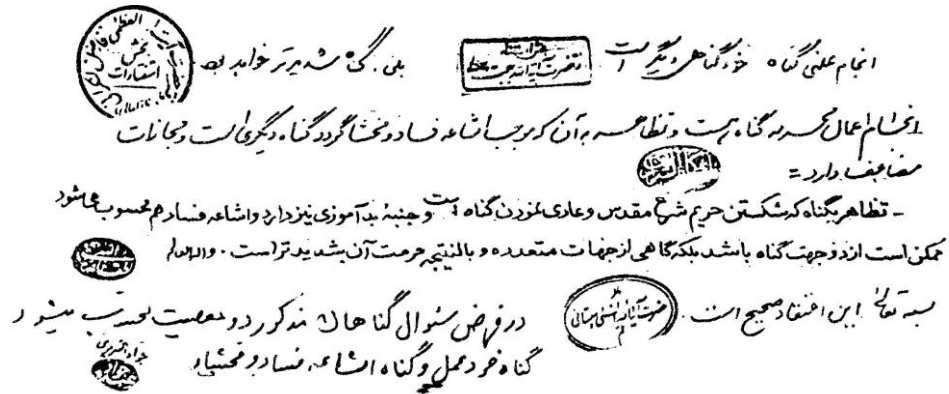 انجام علنی گناه خود گناهی دیگر است
بلی. گناه شدیدتر خواهد بود
بخش استفتاءات
انجام اعمال محرمه گناه است و تظاهر به آن که موجب اشاعه فساد و فحشا گردد گناه دیگری است و مجازات
مضاعف دارد =
- تظاهر بگناه که شکستن حریم شرع مقدس و عادی نمودن گناه است و جنبهٔ بدآموزی نیز دارد و اشاعه فساد هم محسوب میشود
ممکن است از دو جهت گناه باشد بلکه گاهی از جهات متعدده و بالنتیجه حرمت آن شدیدتر است. والله العالم
بسمه تعالی این اعتقاد صحیح است.
در فرض سئوال گناهان مذکور دو معصیت محسوب میشود
گناه خود عمل و گناه اشاعه فساد و فحشاء
جواد تبریزی